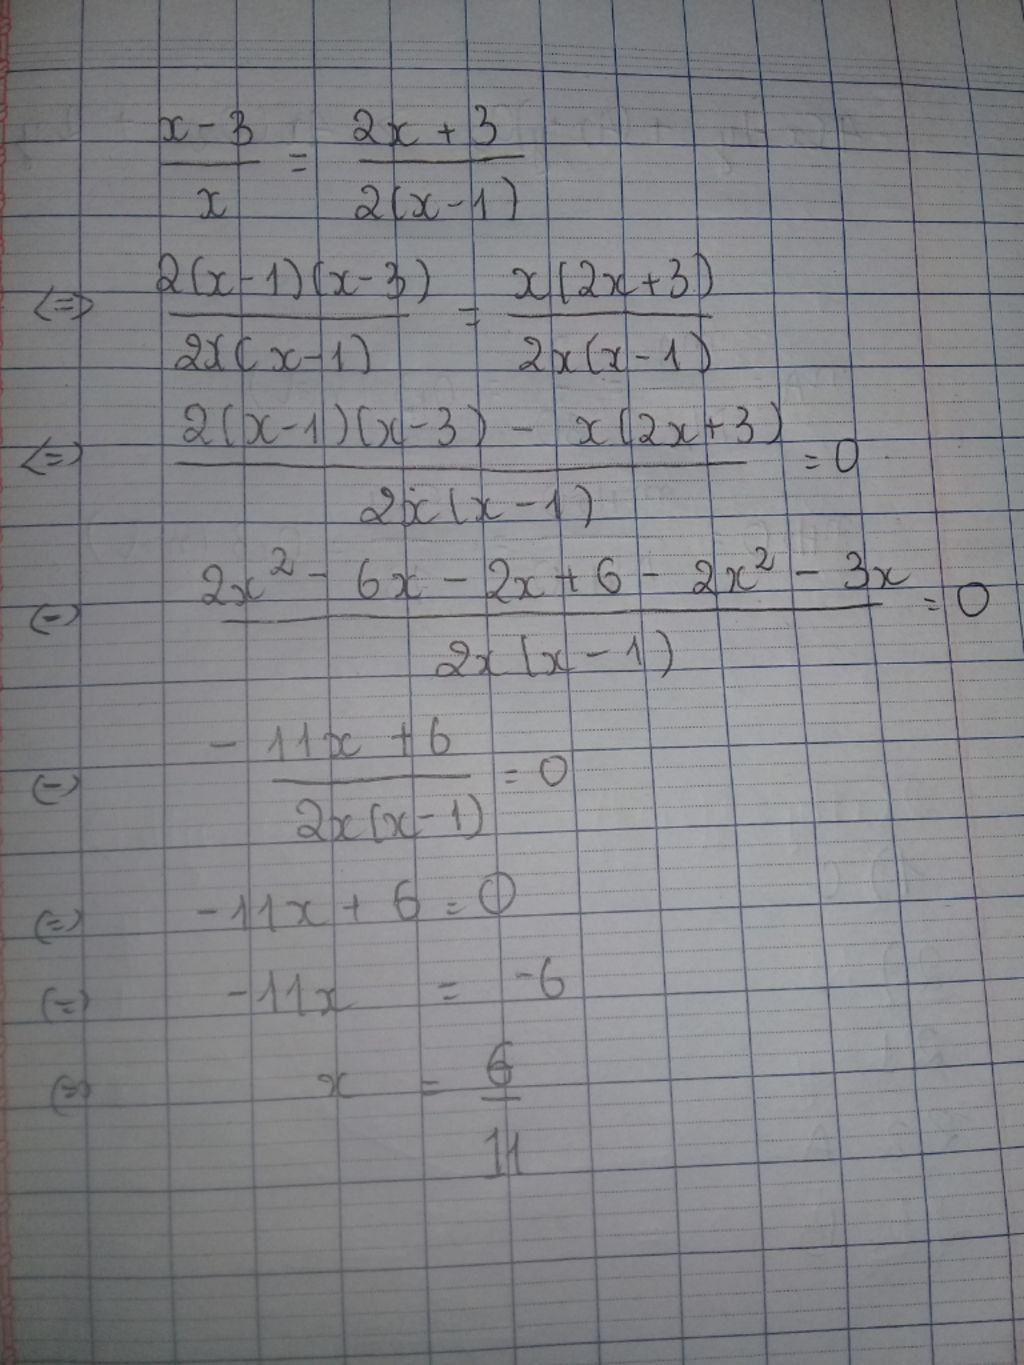 x - 3 / x = 2x + 3 / 2(x - 1)
<=> 2(x - 1)(x - 3) / 2x(x - 1) = x(2x + 3) / 2x(x - 1)
<=> 2(x - 1)(x - 3) - x(2x + 3) / 2x(x - 1) = 0
(=) 2x² - 6x - 2x + 6 - 2x² - 3x / 2x(x - 1) = 0
(=) - 11x + 6 / 2x(x - 1) = 0
(=) - 11x + 6 = 0
(=) - 11x = -6
(=) x = 6 / 11